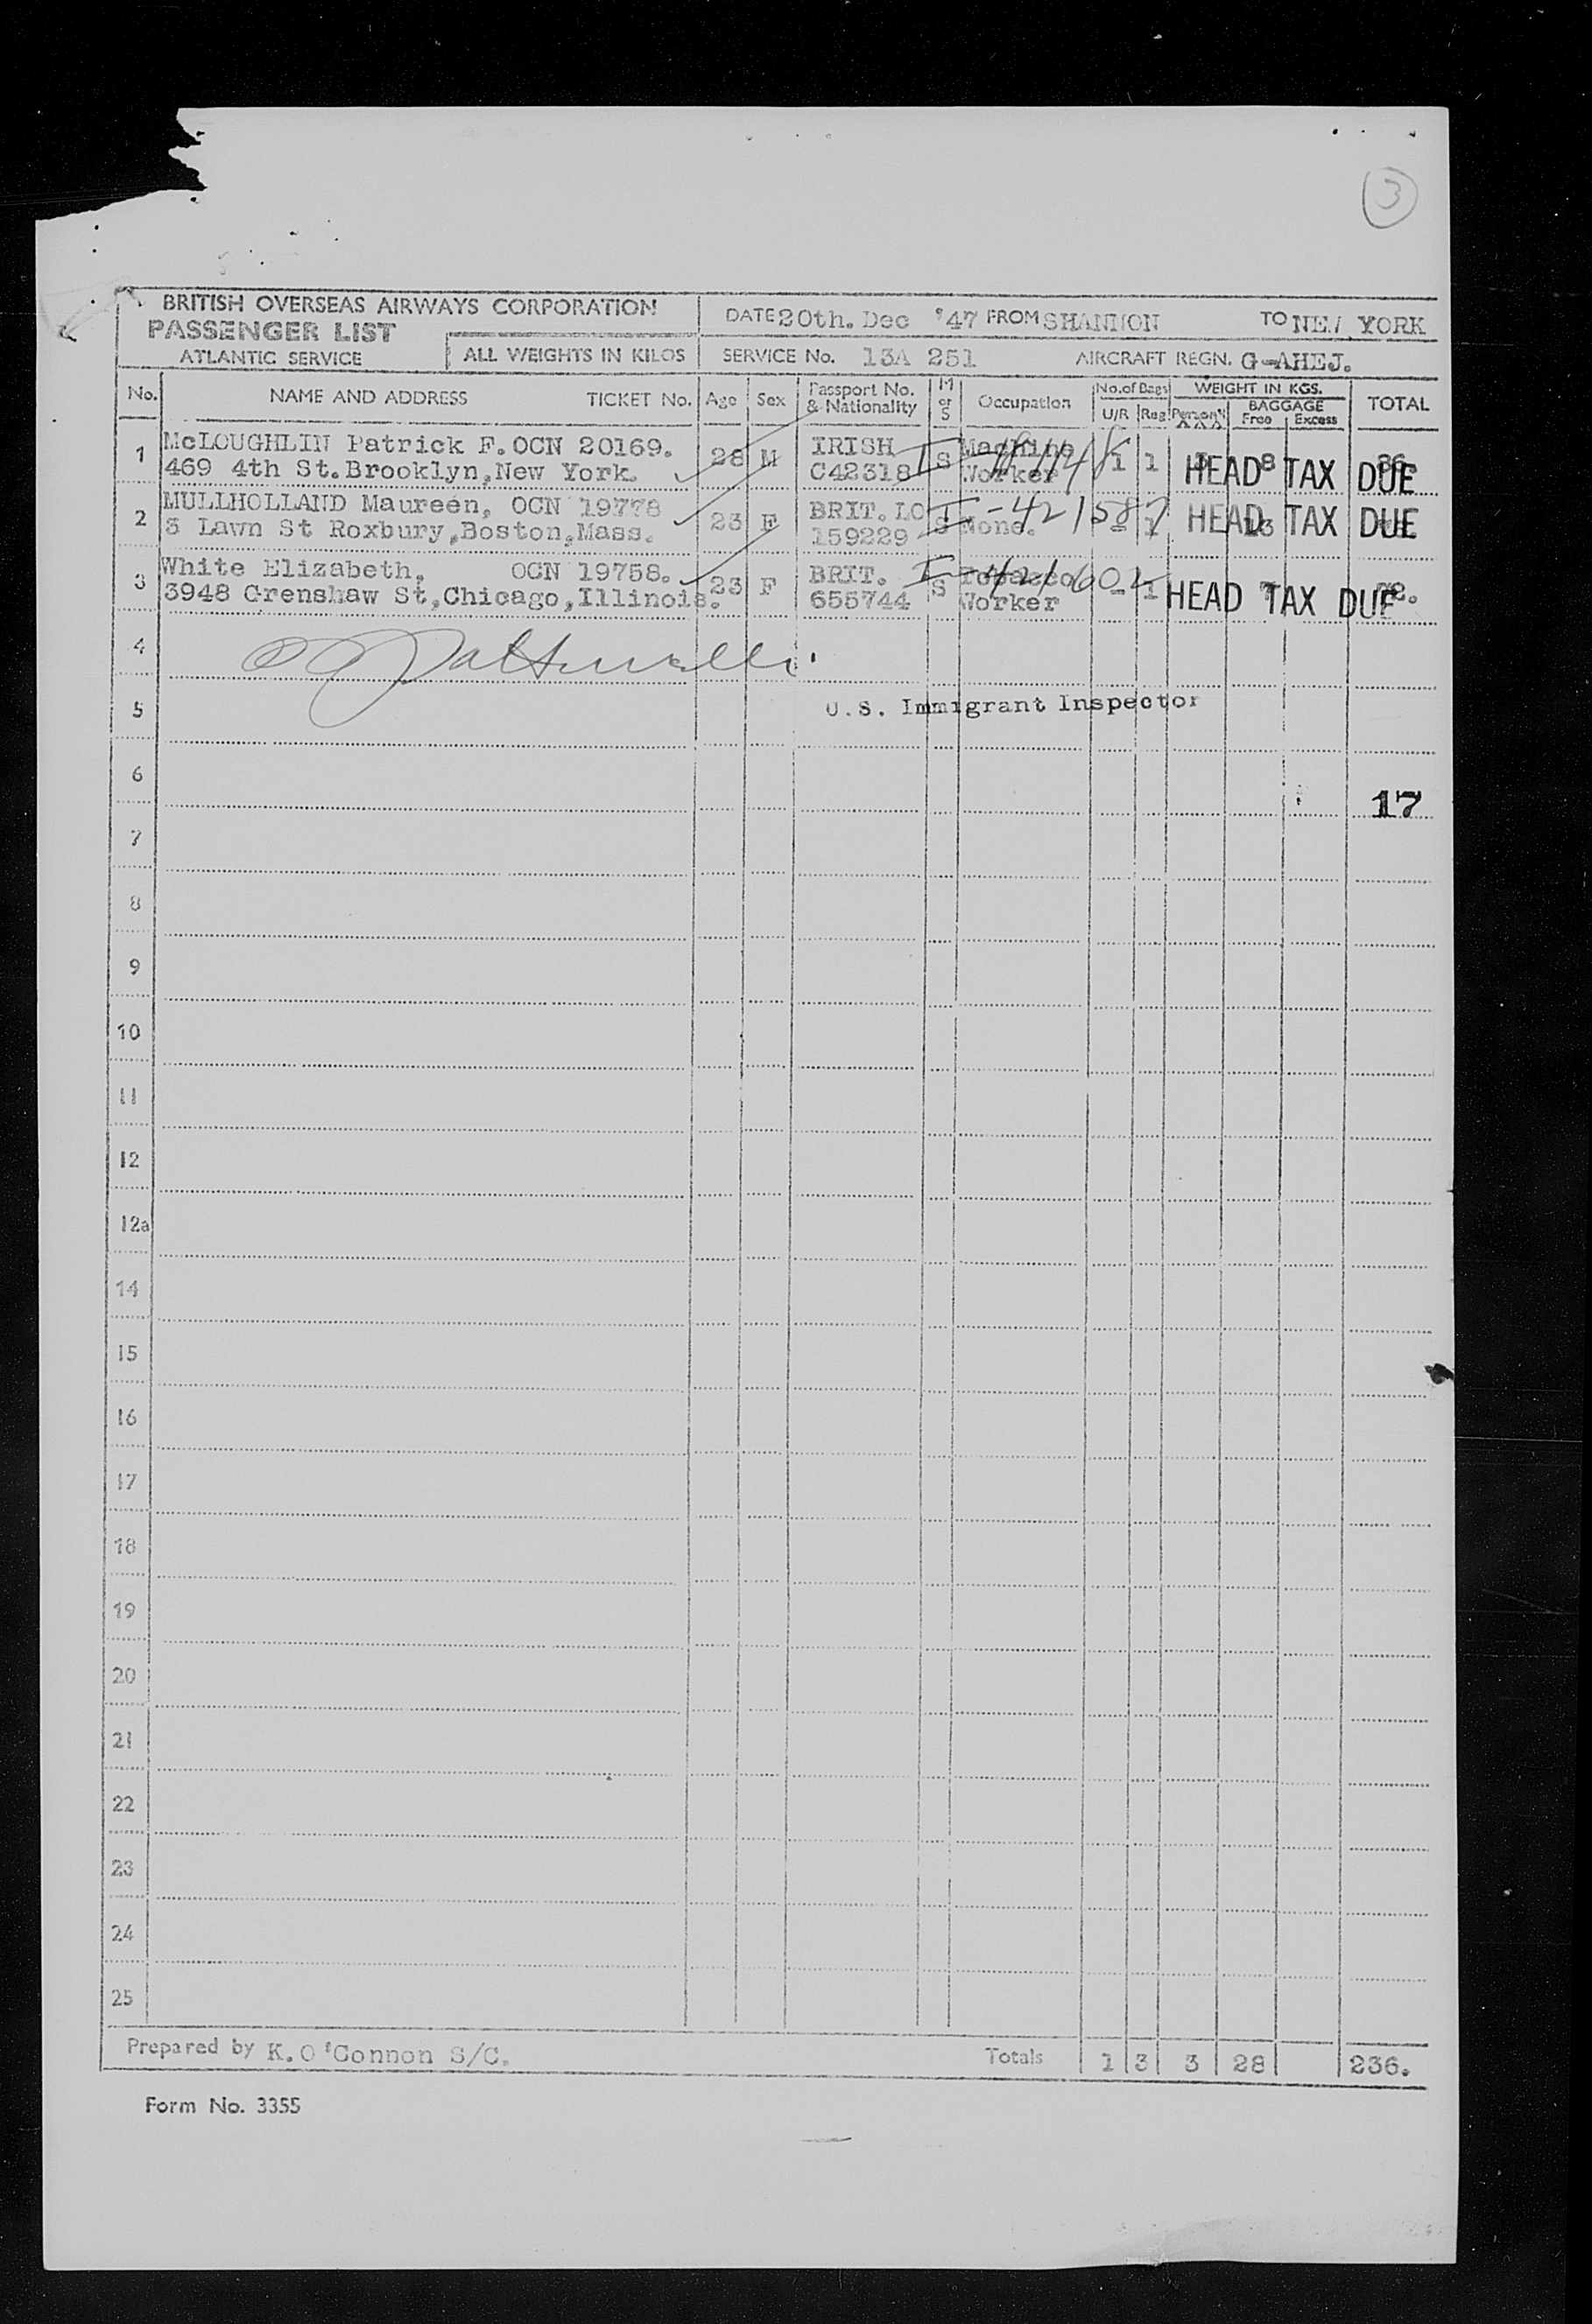 3
BRITISH OVERSEAS AIRWAYS CORPORATION
PASSENGER LIST
ATLANTIC SERVICE
ALL WEIGHTS IN KILOS
DATE 20th. Dec '47 FROM SHANNON TO NEW YORK
SERVICE No. 13A 251 AIRCRAFT REGN. G-AHEJ.
No. NAME AND ADDRESS TICKET No. Age Sex Passport No. & Nationality M or S Occupation No. of Bags U/R Reg WEIGHT IN KGS. BAGGAGE Free Excess TOTAL
1 McLOUGHLIN Patrick F. OCN 20169. 28 M IRISH S Machine 1 1 8 HEAD TAX DUE
469 4th St. Brooklyn, New York. C42318 Worker
2 MULLHOLLAND Maureen, OCN 19778 23 F BRIT. LO I-421587 HEAD TAX DUE
3 Lawn St Roxbury, Boston, Mass. 159229 S None. - 1 13
3 White Elizabeth, OCN 19758. 23 F BRIT. S Tobacco - 1 HEAD TAX DUE
3948 Grenshaw St, Chicago, Illinois. 655744 Worker
4
5 U.S. Immigrant Inspector
6
17
7
8
9
10
11
12
12a
14
15
16
17
18
19
20
21
22
23
24
25
Prepared by K. O'Connon S/C. Totals 1 3 3 28 236.
Form No. 3355